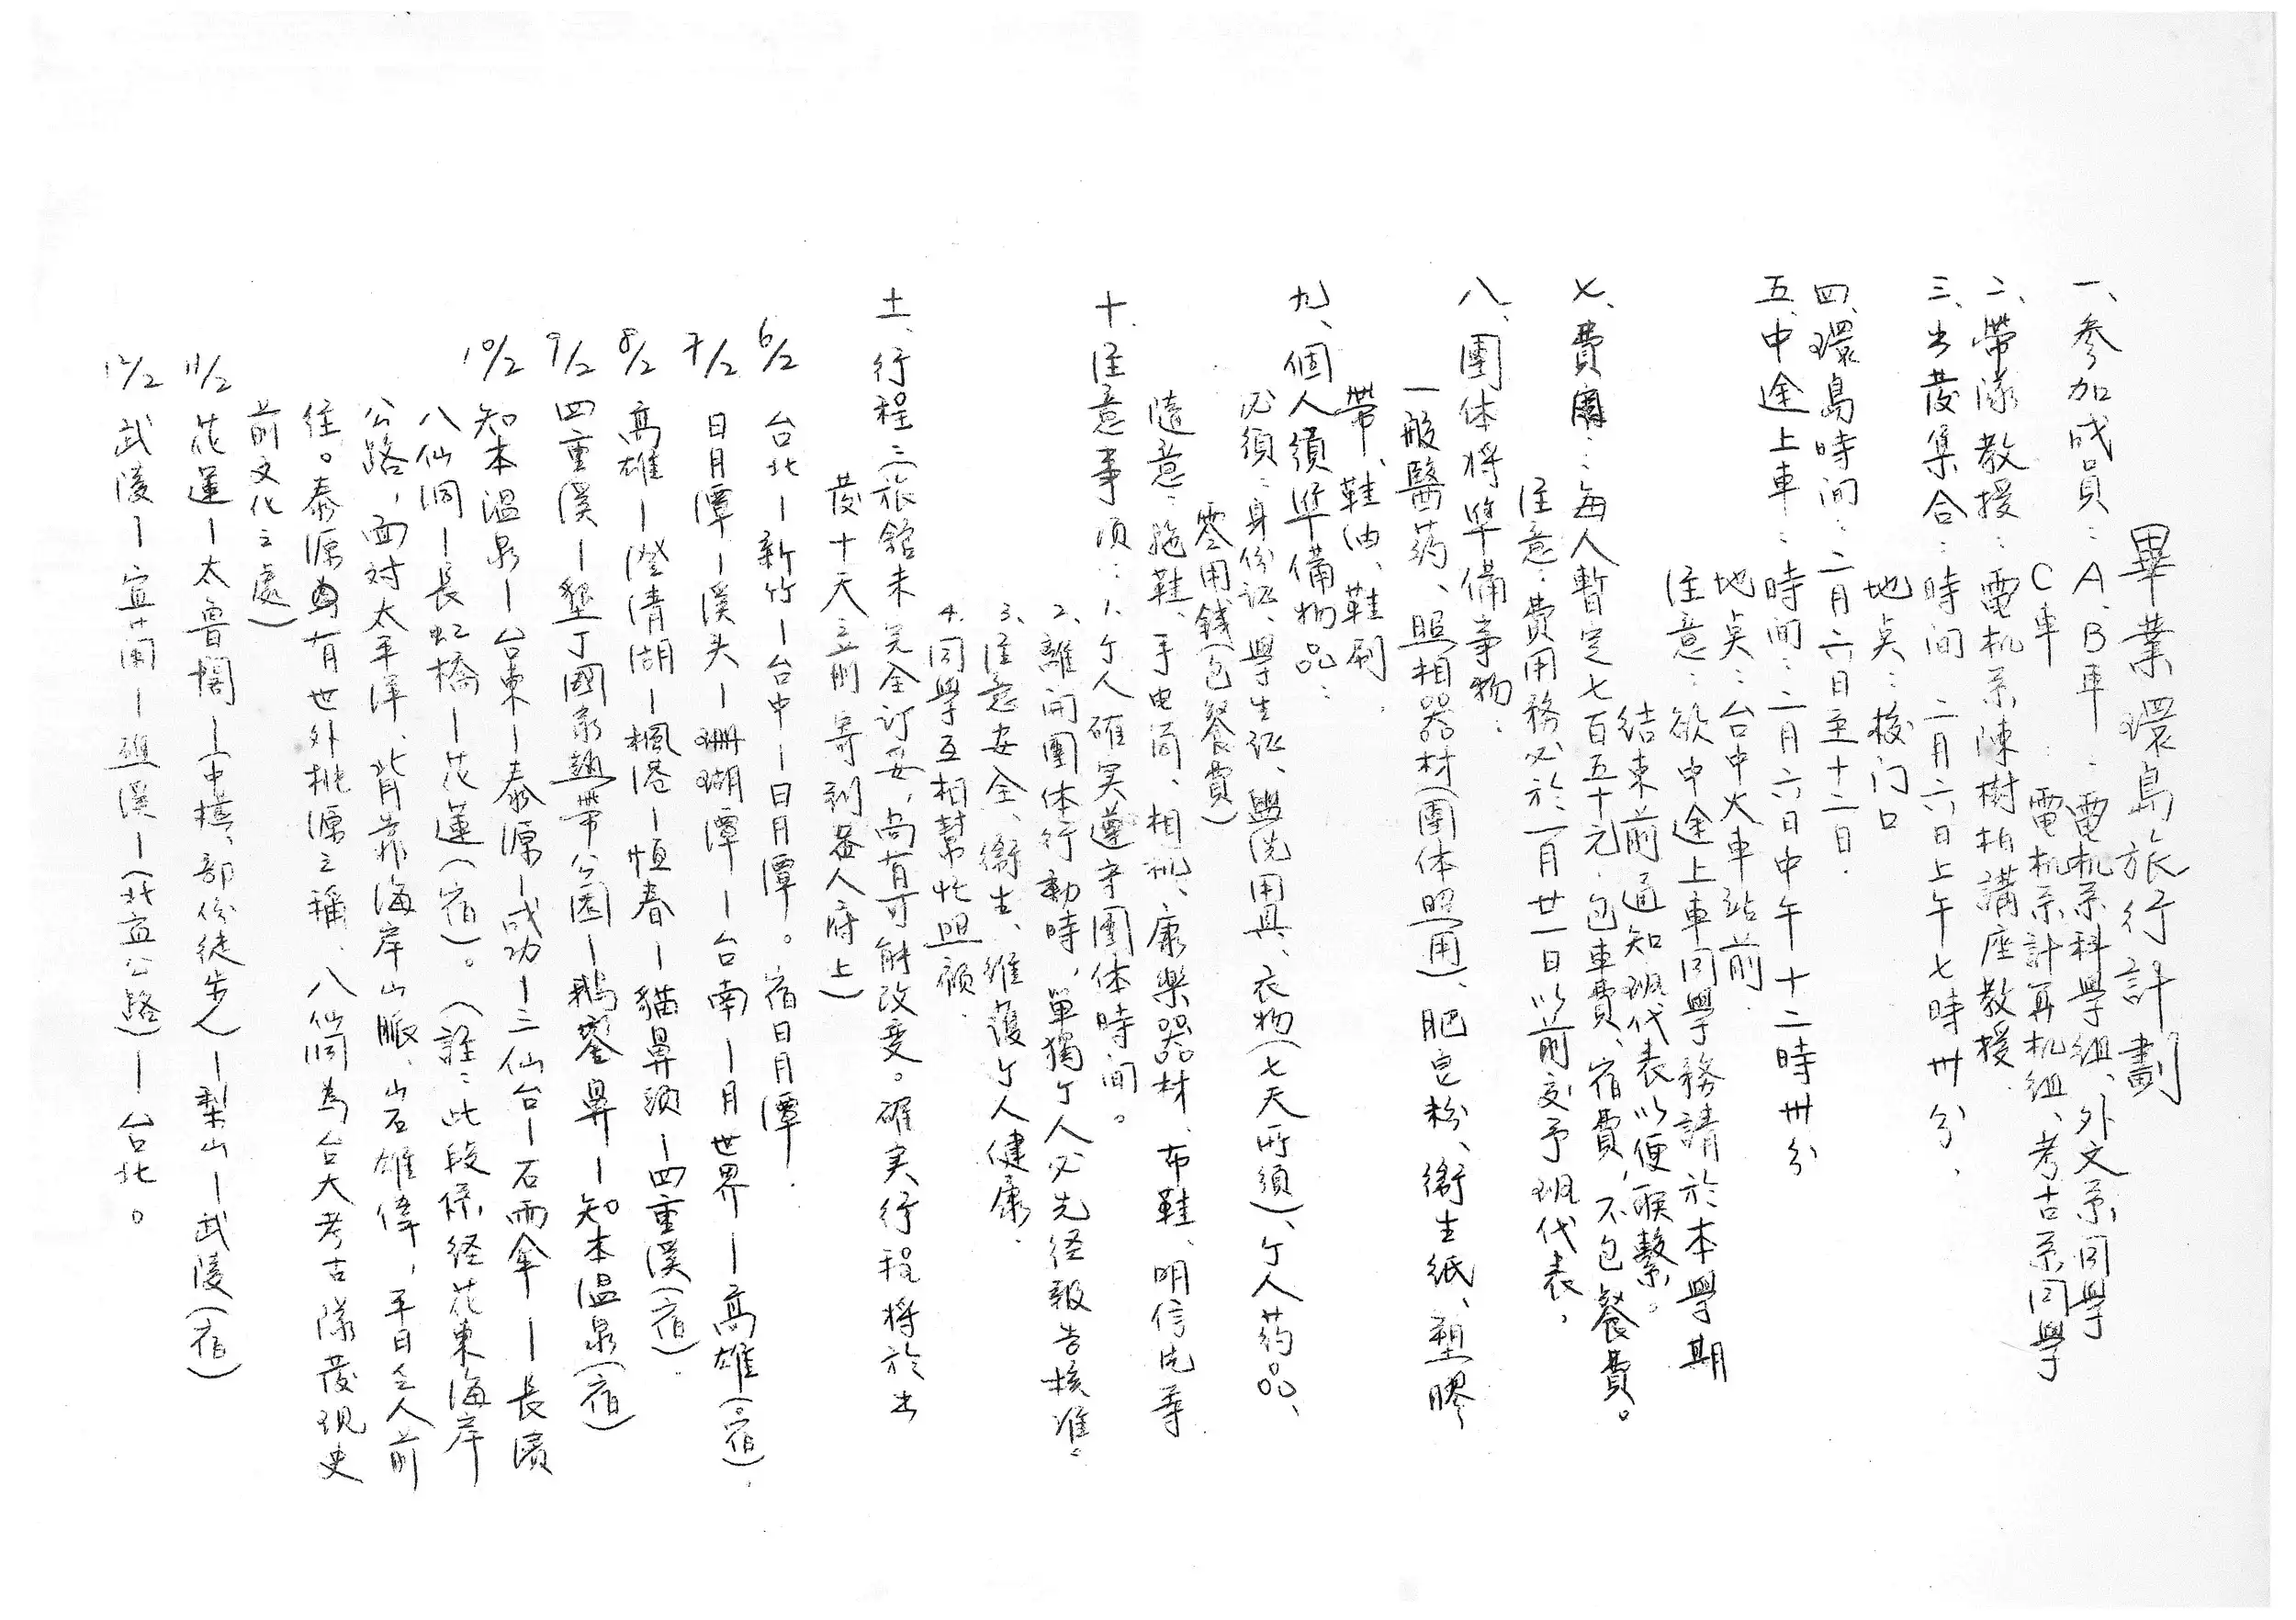 畢業環島旅行計劃
一、參加成員：A、B車：電机系科學組、外文系同學
C車：電机系計算机組、考古系同學
二、帶隊教授：電机系陳樹柏講座教授.
三、出發集合：時间 二月六日上午七時卅分、
地点：校门口
四、環島時间：二月六日至十二日.
五、中途上車：時间：二月六日中午十二時卅分
地点：台中火車站前.
注意：欲中途上車同學務請於本學期
結束前通知班代表以便联繫。
七、費用：每人暫定七百五十元.包車費、宿費，不包餐費。
注意：費用務必於一月廿一日以前交予班代表，
八、團体将準備事物：
一般醫药、照相器材(團体照用)、肥皂粉、衛生紙、塑膠
帶、鞋油、鞋刷.
九、個人須準備物品：
必須：身份証、學生証、盥洗用具、衣物(七天所須)、个人药品、
零用錢(包餐費)
隨意：拖鞋、手电筒、相机、康樂器材、布鞋、明信片等
十.注意事項：1.个人確实遵守團体時间。
2.離開團体行動時，單獨个人必先径報告核准。
3.注意安全、衛生、維護个人健康.
4.同學互相幫忙照顧.
土、行程：(旅館未完全订妥，尚有可能改变。確实行程将於出
發十天之前寄到各人府上)
6/2 台北－新竹－台中－日月潭。宿日月潭.
7/2 日月潭－溪头－珊瑚潭－台南－月世界－高雄(宿).
8/2 高雄－澄清湖－楓港－恒春－貓鼻頭－四重溪(宿).
9/2 四重溪－墾丁國家熱帶公園－鵝鑾鼻－知本温泉(宿)
10/2 知本温泉－台東－泰源－成功－三仙台－石雨傘－長濱
八仙洞－長虹橋－花蓮(宿)。(註：此段係経花東海岸
公路，面对太平洋、背靠海岸山脈、岩石雄偉，平日乏人前
往。泰源有世外桃源之稱、八仙洞為台大考古隊發現史
前文化之處)
11/2 花蓮－太魯閣－(中橫、部份徒步)－梨山－武陵(宿)
12/2 武陵－宜蘭－礁溪－(北宜公路)－台北。